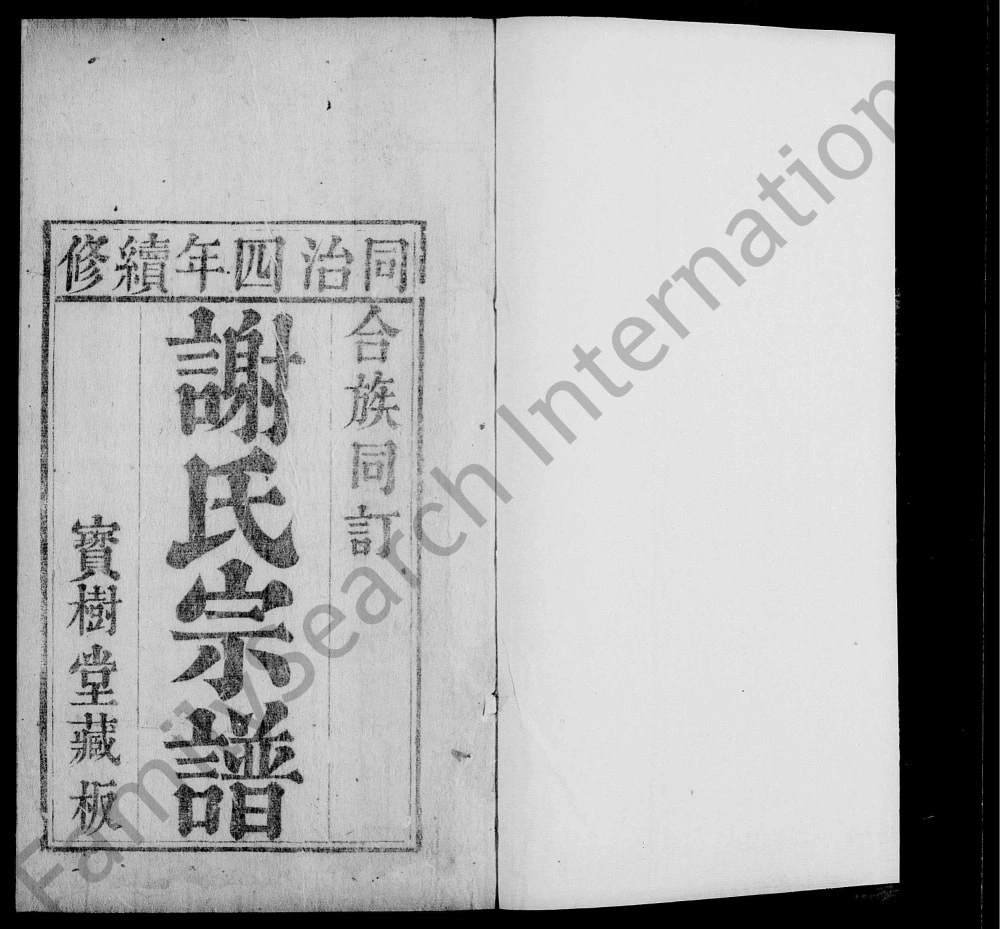 同治四年續修
合族同訂
謝氏宗譜
寶樹堂藏板
FamilySearch International